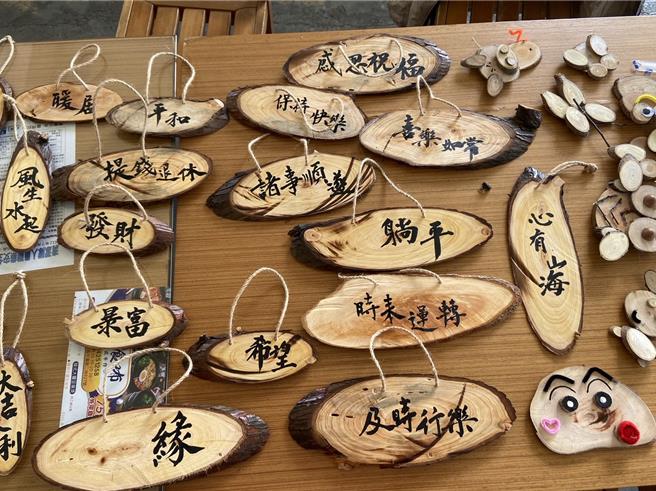 感恩祝福
暖居
平和
保持快樂
喜樂如常
提錢退休
諸事順遂
風生水起
發財
躺平
心有山海
暴富
時來運轉
希望
大吉大利
及時行樂
緣